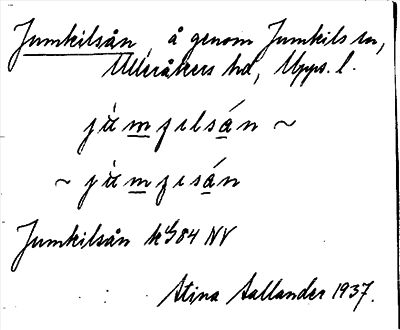 Jumkilsån, å genom Jumkils sn,
Ulleråkers hd, Upps. l.
jùmꞓilsán ~
~ jùmꞓisán
Jumkilsån k G84 NV
Stina Sallander 1937.